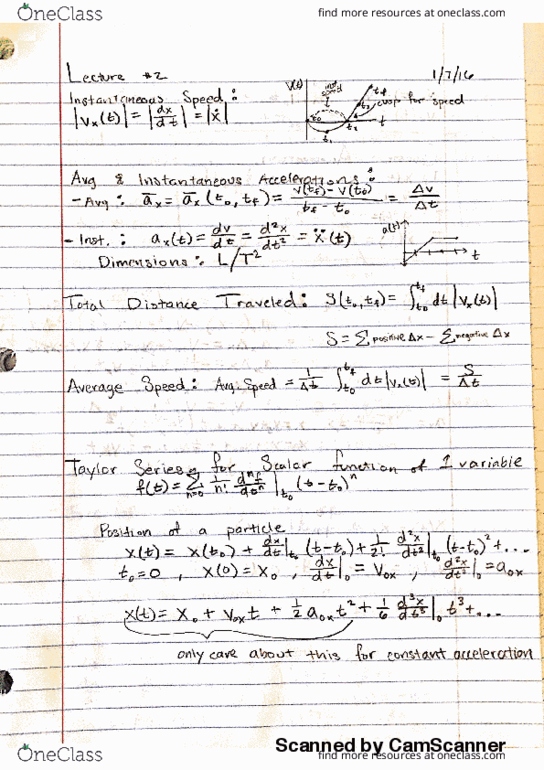 OneClass
find more resources at oneclass.com
Lecture #2
1/7/16
Instantaneous Speed:
|vₓ(t)| = |dx/dt| = |ẋ|
V(t)
inst speed
t₀
t₁
t₂
t_f
t
cusp for speed
Avg & Instantaneous Accelerations:
- Avg: āₓ = āₓ(t₀, t_f) = (v(t_f) - v(t₀))/(t_f - t₀) = Δv/Δt
- Inst.: aₓ(t) = dv/dt = d²x/dt² = ẍ(t)
a(t)
t
Dimensions: L/T²
Total Distance Traveled: S(t₀, t_f) = ∫_{t₀}^{t_f} dt |vₓ(t)|
S = Σ positive Δx - Σ negative Δx
Average Speed: Avg. Speed = 1/Δt ∫_{t₀}^{t_f} dt |vₓ(t)| = S/Δt
Taylor Series for Scalar function of 1 variable
f(t) = Σ_{n=0} 1/n! dⁿf/dtⁿ|_{t₀} (t-t₀)ⁿ
Position of a particle
x(t) = x(t₀) + dx/dt|_{t₀} (t-t₀) + 1/2! d²x/dt²|_{t₀} (t-t₀)² + ...
t₀=0, x(0) = x₀, dx/dt|₀ = v₀ₓ, d²x/dt²|₀ = a₀ₓ
x(t) = x₀ + v₀ₓt + ½a₀ₓt² + 1/6 d³x/dt³|₀ t³ + ...
only care about this for constant acceleration
Scanned by CamScanner
OneClass
find more resources at oneclass.com